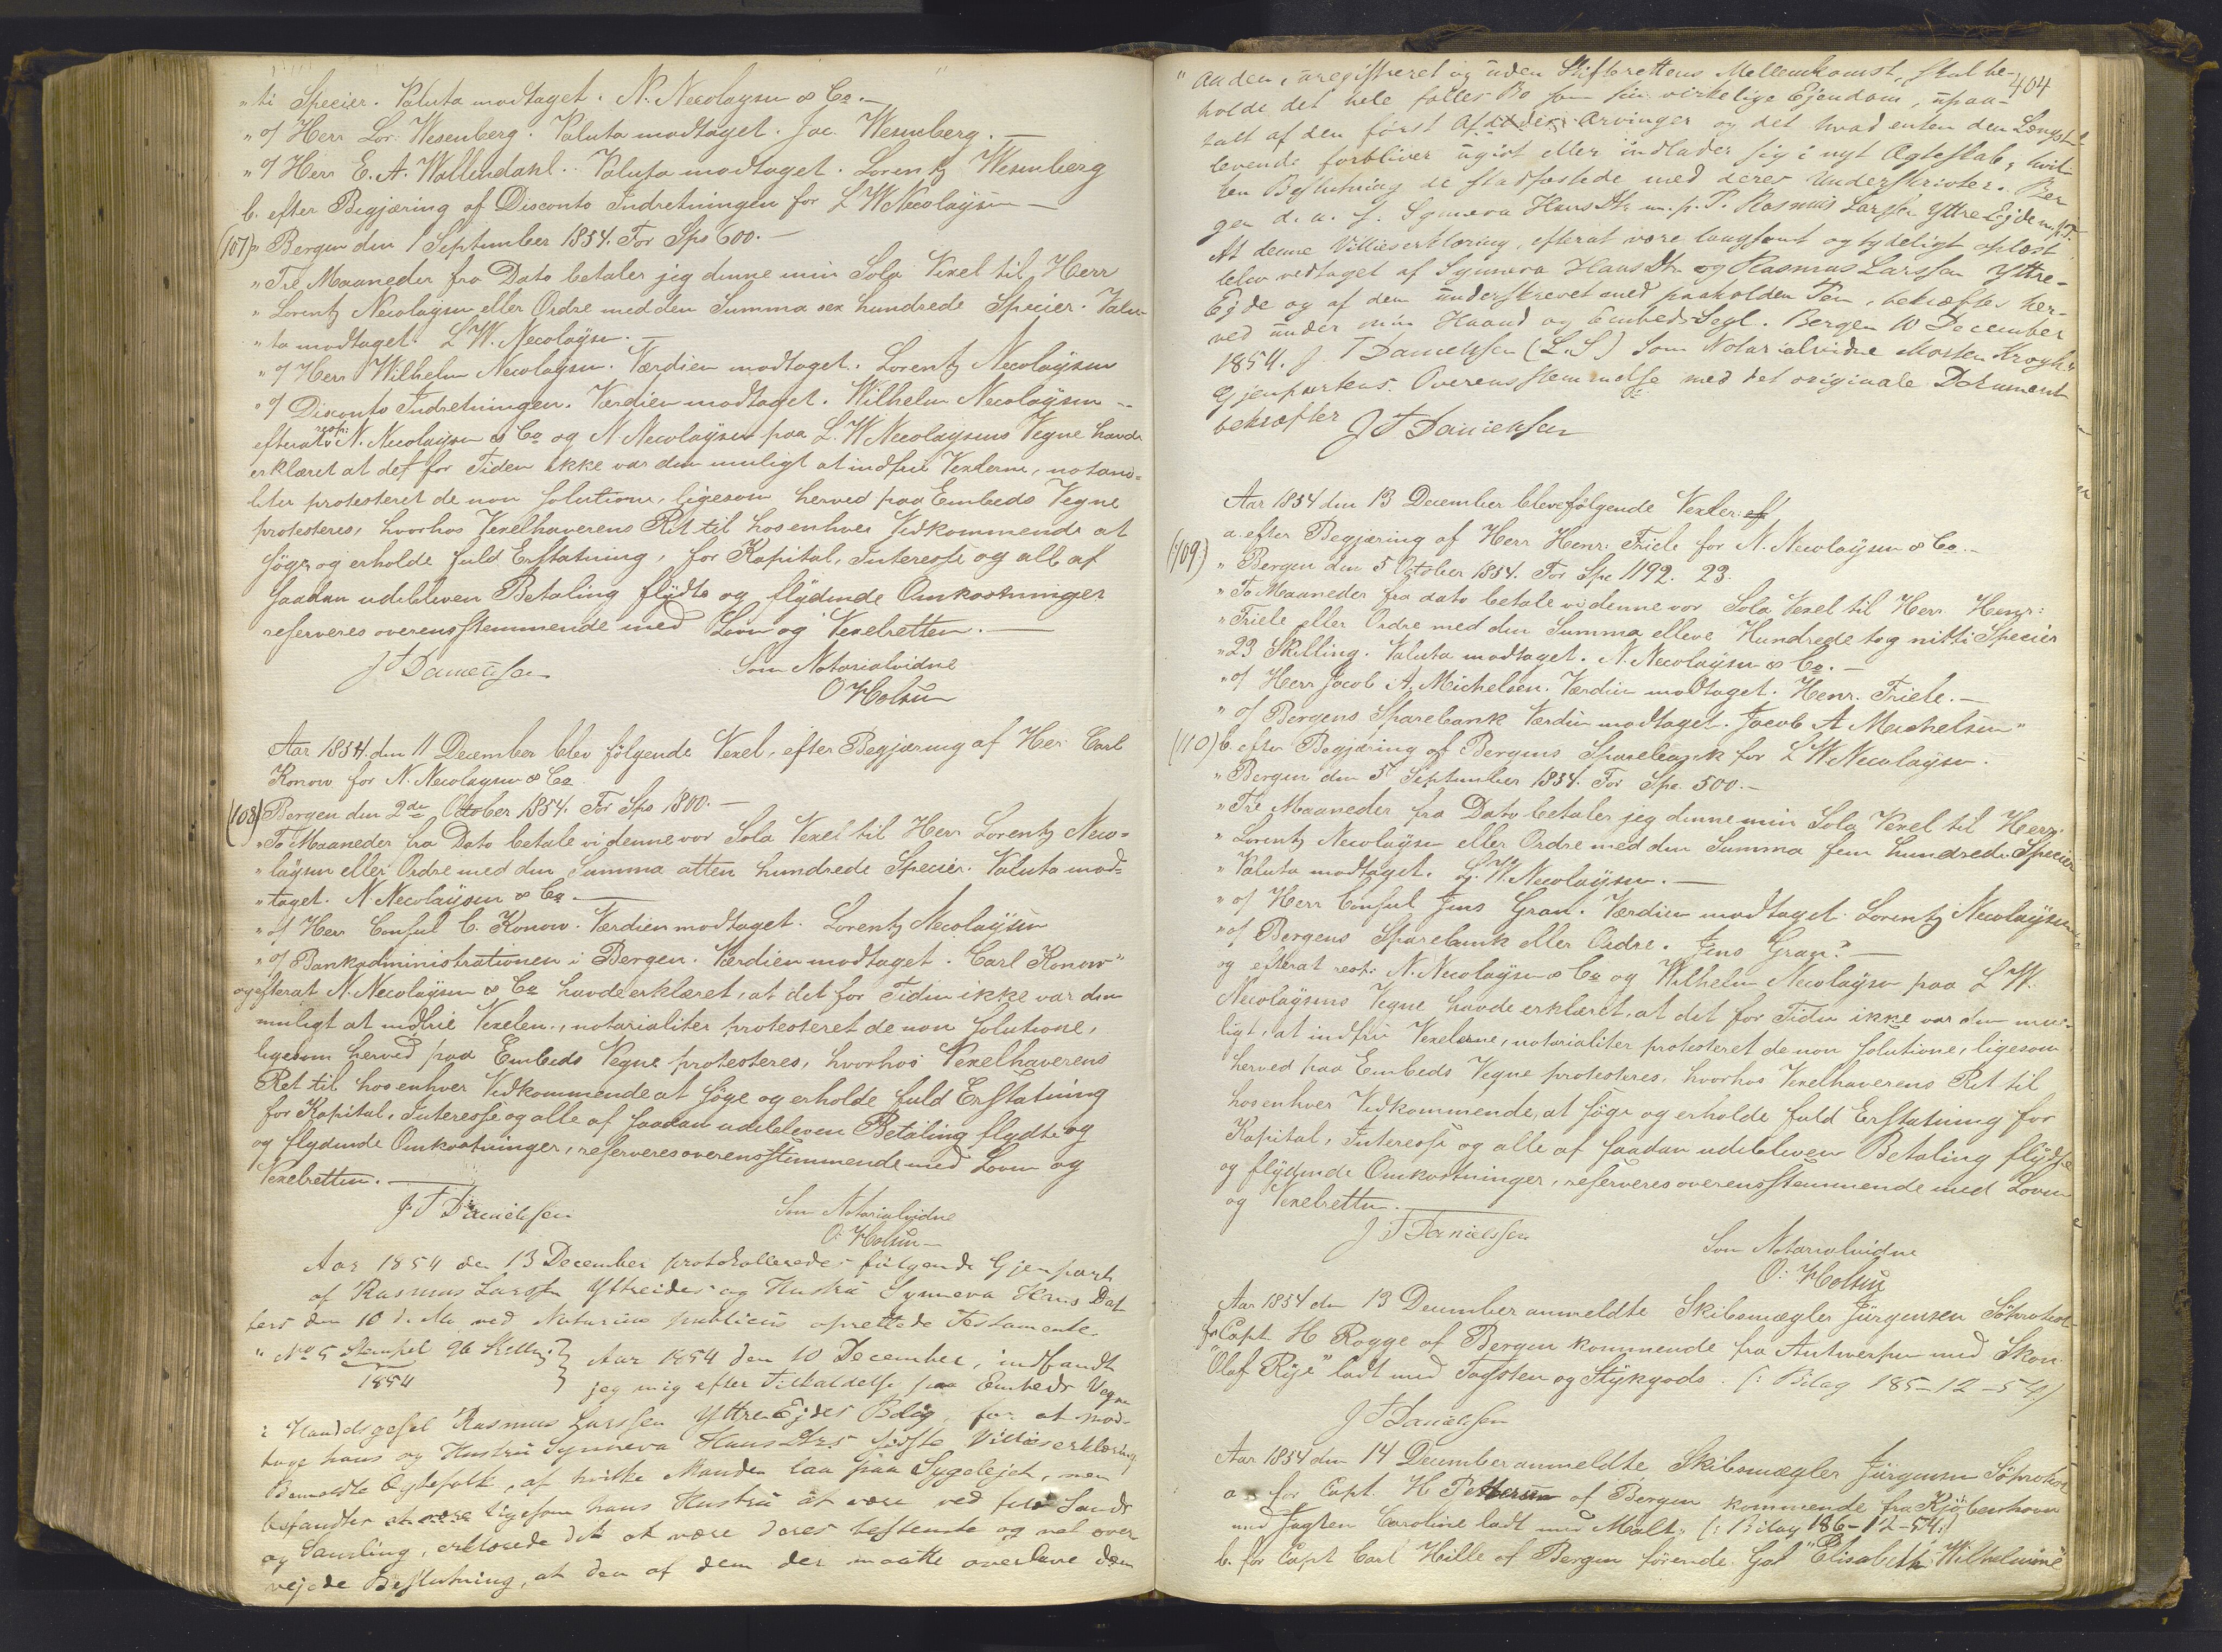 "ti Specier. Valuta modtaget. N. Necolaysen & Co.—
"of Herr Lor. Wesenberg. Valuta modtaget. Jac. Wesenberg.—
"of Herr E. A. Wallendahl. Valuta modtaget. Lorentz Wesenberg
b. efter Begjæring af Disconto Indretningen for L W Necolaysen—
(107) "Bergen den 1 September 1854. For Sps 600.—
"Tre Maaneder fra Dato betaler jeg denne min Sola Vexel til Herr
"Lorentz Necolaysen eller Ordre med den Summa sex hundrede Specier. Valu-
"ta modtaget. L W. Necolaysen.—
"of Herr Wilhelm Necolaysen. Værdien modtaget. Lorentz Necolaysen
"of Disconto Indretningen. Værdien modtaget. Wilhelm Necolaysen—
efterat resp: N. Necolaysen & Co og N. Necolaysen paa L. W Necolaysens Vegne havde
erklæret at det for Tiden ikke var dem muligt at indfrie Vexlerne, notaria-
liter protesteret de non solutione, ligesom herved paa Embeds Vegne
protesteres, hvorhos Vexelhaverens Ret til hos enhver Vedkommende at
søge og erholde fuld Erstatning, for Kapital, Interesse og alle af
saadan udebleven Betaling flydte og flydende Omkostninger
reserveres overensstemmende med Loven og Vexelretten.—
J T Danielssen Som Notarialvidne
O Holsen
Aar 1854. den 11 December blev følgende Vexel, efter Begjæring af Herr Carl
Konow for N. Necolaysen & Co
(108) Bergen den 2de October 1854. For Sps 1800.—
"To Maaneder fra Dato betale vi denne vor Sola Vexel til Herr Lorentz Neco-
"laysen eller Ordre med den Summa atten hundrede Specier. Valuta mod-
"taget. N Necolaysen & Co.—
"of Herr Consul C. Konow. Værdien modtaget. Lorentz Necolaysen
"of Bankadministrationen i Bergen. Værdien modtaget. Carl Konow"
og efterat N. Necolaysen & Co havde erklæret, at det for Tiden ikke var dem
muligt at indfrie Vexelen, notarialiter protesteret de non solutione,
ligesom herved paa Embeds Vegne protesteres, hvorhos Vexelhaverens
Ret til hos enhver Vedkommende at søge og erholde fuld Erstatning
for Kapital, Interesse og alle af saadan udebleven Betaling flydte og
og flydende Omkostninger, reserveres overensstemmende med Loven og
Vexelretten.—
J T Danielssen Som Notarialvidne
O: Holsen—
Aar 1854 den 13 December protokolleredes følgende Gjenpart
af Rasmus Larssen Yttreides og Hustru Synneva Hans Dat
ters den 10 d. M. ved Notarius publicus oprettede Testamente.
"No 5 Stempel 96 Skilling Aar 1854 den 10 December, indfandt
1854 jeg mig efter Tilkaldelse paa Embeds Vegne
i Handelsgesel Rasmus Larssen Yttre Ejdes Bolig, for at mod-
tage hans og Hustru Synneva Hans Dtrs sidste Villieserklæring
Bemeldte Ægtefolk, af hvilke Manden laa paa Sygelejet, men
befandtes at være ligesom hans Hustru at være ved fuld Sands
og Samling, erklærede det at være deres bestemte og vel over
vejede Beslutning, at den af dem der maatte overleve den
404
"anden, uregistreret og uden Skifterettens Mellemkomst, skal be-
holde det hele fælles Bo som sin virkelige Ejendom, upaa-
talt af den først Afdødes Arvinger og det hvad enten den Længst
levende forbliver ugivt eller indlader sig i nyt Ægteskab, hvil-
ken Beslutning de stadfæstede med deres Underskrivter. Ber
gen d. a. s. Synneva Hans Dtr m. p. P. Rasmus Larssen Yttre Ejde m. p. P.
At denne Villieserklæring, efterat være langsomt og tydeligt oplæst
blev vedtaget af Synneva Hans Dtr og Rasmus Larssen Yttre-
Ejde og af dem underskrevet med paaholden Pen, bekræftes her-
ved under min Haand og Embeds Segl. Bergen 10 December
1854. J T Danielssen (L.S) Som Notarialvidne Morten Krogh"
Gjenpartens Overensstemmelse med det originale Dokument
bekræfter J T Danielssen
Aar 1854 den 13 December bleve følgende Vexler: ef
a. efter Begjæring af Herr Henr: Friele for N. Necolaysen & Co.—
(109.) "Bergen den 5 October 1854. For Spe 1192. 23.
"To Maaneder fra dato betale vi denne vor Sola Vexel til Herr Henr:
"Friele eller Ordre med den Summa elleve Hundrede tog nitti Specier
"23 Skilling. Valuta modtaget. N. Necolaysen & Co.—
"of Herr Jacob A. Michelsen. Værdien modtaget. Henr. Friele.—
"of Bergens Sparebank Værdien modtaget. Jacob A Meichelsen"
(110) b. efter Begjæring af Bergens Sparebank for L W Necolaysen.
"Bergen den 5 September 1854. For Spe. 500.—
"Tre Maaneder fra Dato betaler jeg denne min Sola Vexel til Herr
"Lorentz Necolaysen eller Ordre med den Summa fem hundrede Specier
"Valuta modtaget. L. W. Necolaysen.—
"of Herr Consul Jens Gran. Værdien modtaget. Lorentz Necolaysen
"of Bergens Sparebank eller Ordre. Jens Gran."—
og efterat resp: N. Necolaysen & Co og Wilhelm Necolaysen paa L W.
Necolaysens Vegne havde erklæret, at det for Tiden ikke var dem mu-
ligt, at indfrie Vexelerne, notarialiter protesteret de non solutione, ligesom
herved paa Embeds Vegne protesteres, hvorhos Vexelhaverens Ret til
hos enhver Vedkommende, at søge og erholde fuld Erstatning for
Kapital, Interesse og alle af saadan udebleven Betaling flydte
og flydende Omkostninger, reserveres overensstemmende med Loven
og Vexelretten.
J T Danielssen Som Notarialvidne
O: Holsen
Aar 1854 den 13 December anmeldte Skibsmægler Jürgensen Søprotest
for Capt. H Rogge af Bergen kommende fra Antwerpen med Skon
"Olaf Rye" ladt med Tagsten og Stykgods. (: Bilag 185-12-54:)
J T Danielssen
Aar 1854 den 14 December anmeldte Skibsmægler Jürgensen Søprotest
a. for Capt. H Pettersen af Bergen kommende fra Kjøbenhavn
med Jagten Caroline ladt med Malt. (: Bilag 186-12-54:)
b. for Capt Carl Hille af Bergen førende Gal "Elisabeth Wilhelmine